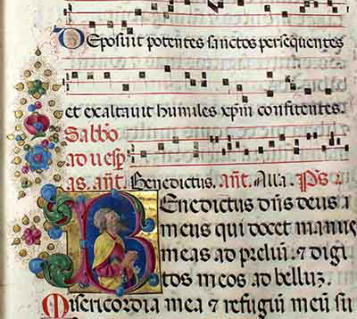 Deposuit potentes sanctos persequentes
et exaltauit humiles xp̄m confitentes.
Sabb̄o
ad uesp̄
as. an̄t. Benedictus. an̄t. Alla. Ps
Benedictus dn̄s deus
meus qui docet manus
meas ad preliū. ⁊ digi
tos meos ad belluȝ.
Misericordia mea ⁊ refugiū meū su